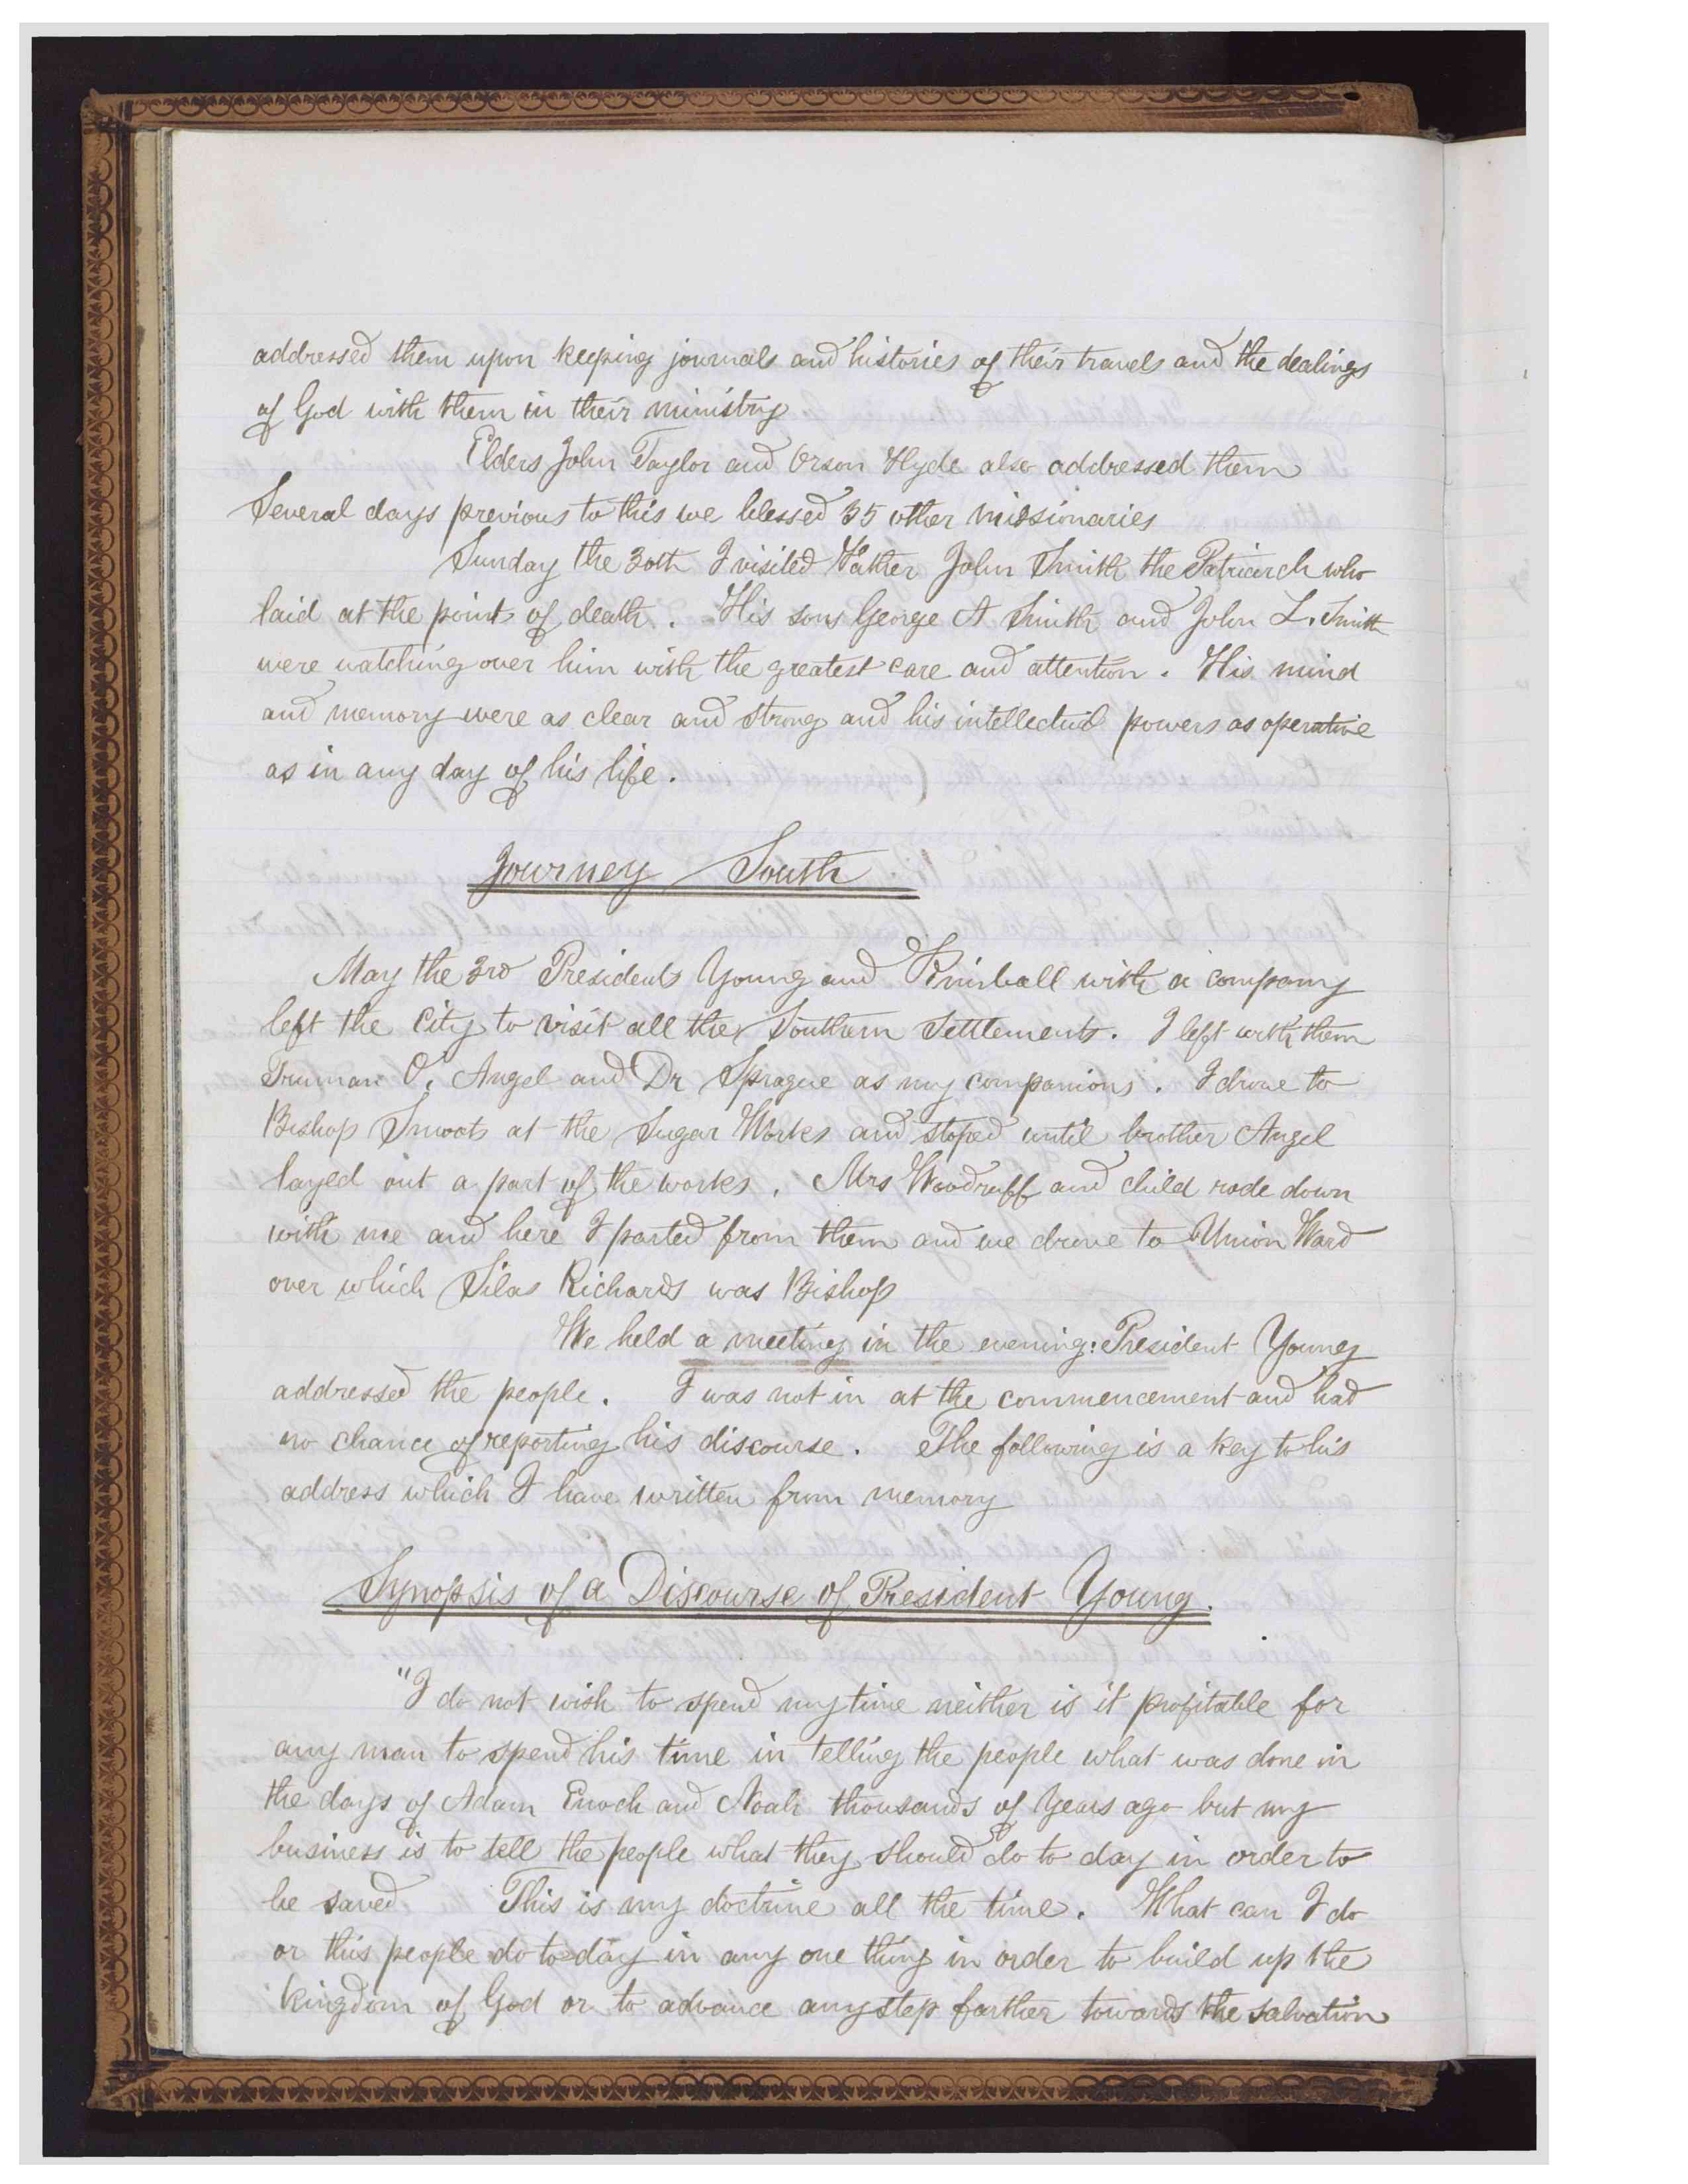 addressed them upon keeping journals and histories of their travels and the dealings
of God with them in their ministry
Elders John Taylor and Orson Hyde also addressed them
Several days previous to this we blessed 35 other missionaries
Sunday the 30th I visited Father John Smith the Patriarch who
laid at the point of death. His sons George A Smith and John L. Smith
were watching over him with the greatest care and attention. His mind
and memory were as clear and strong and his intellectual powers as operative
as in any day of his life.
Journey South
May the 3rd Presidents Young and Kimball with a company
left the City to visit all the Southern Settlements. I left with them
Truman O. Angel and Dr Sprague as my companions. I drove to
Bishop Smoots at the Sugar Works and stoped until brother Angel
layed out a part of the works. Mrs Woodruff and child rode down
with me and here I parted from them and we drove to Union Ward
over which Silas Richards was Bishop
We held a meeting in the evening: President Young
addressed the people. I was not in at the commencement and had
no chance of reporting his discourse. The following is a key to his
address which I have written from memory
Synopsis of a Discourse of President Young.
"I do not wish to spend my time neither is it profitable for
any man to spend his time in telling the people what was done in
the days of Adam Enoch and Noah thousands of years ago but my
business is to tell the people what they should do to day in order to
be saved This is my doctrine all the time. What can I do
or this people do to-day in any one thing in order to build up the
kingdom of God or to advance any step farther towards the salvation